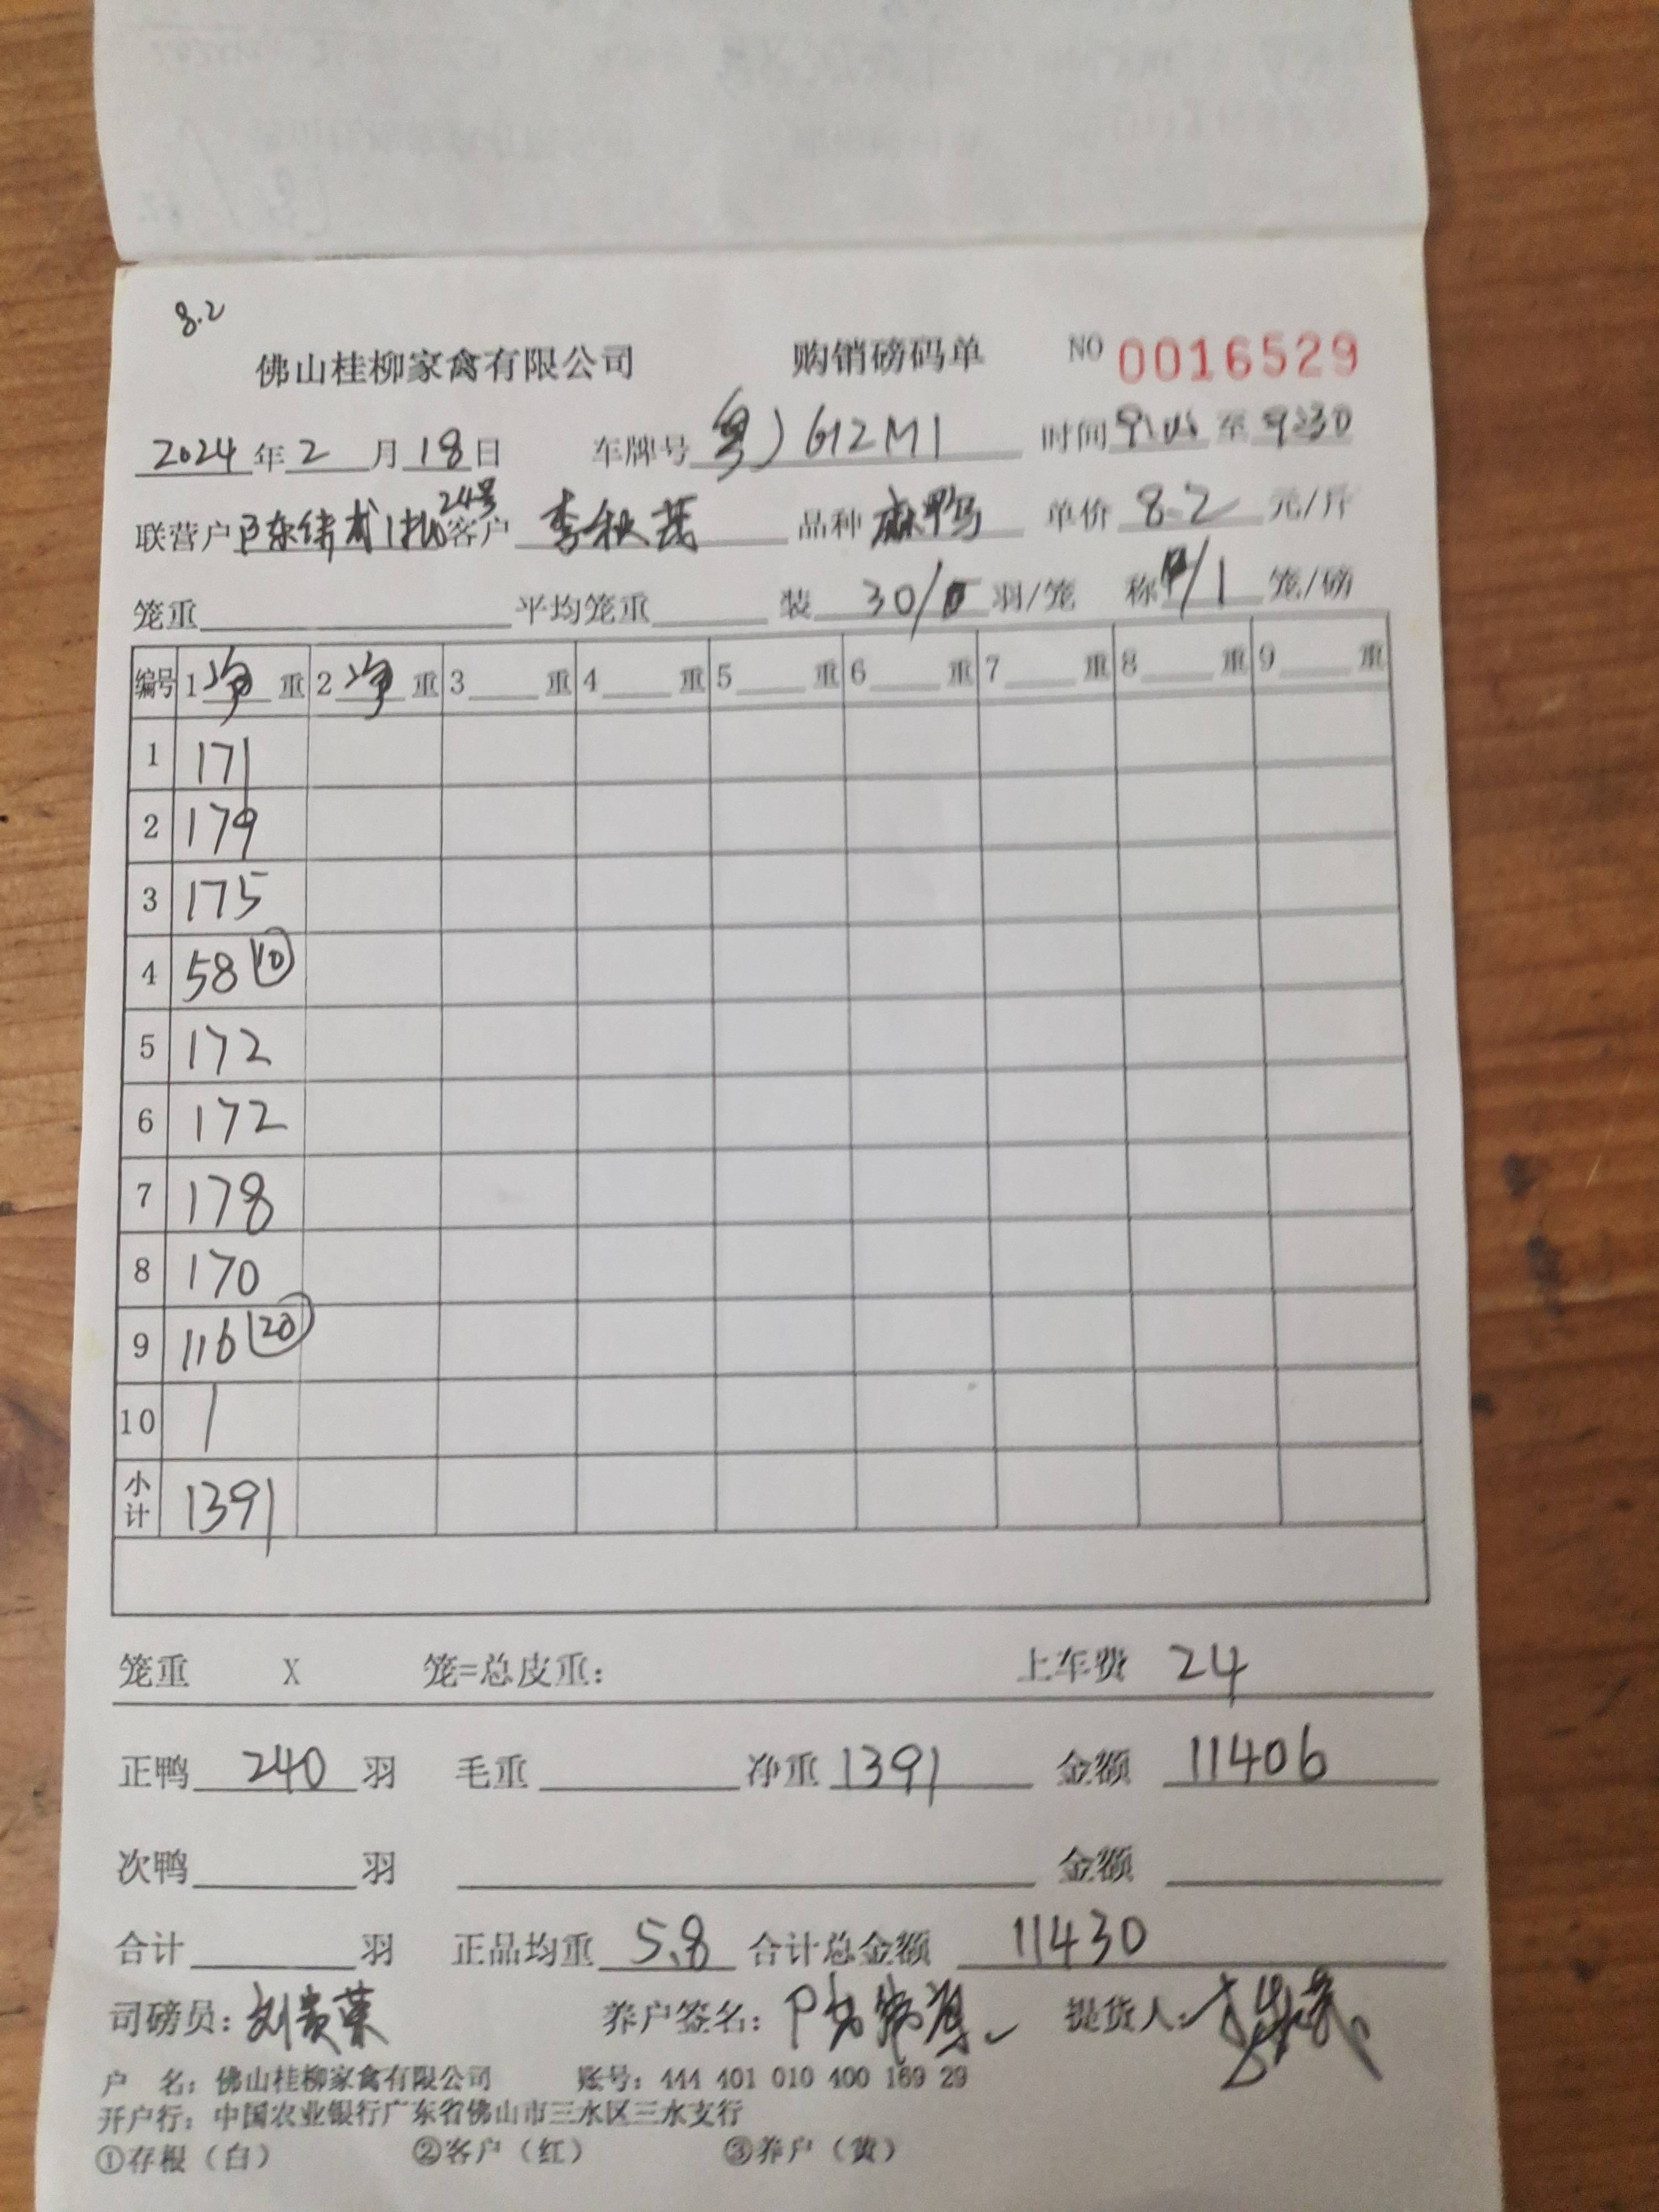 8.2
佛山桂柳家禽有限公司 购销磅码单 NO 0016529
2024年2月18日 车牌号 粤J612M1 时间 至 9:30
联营户 24号 客户 李秋茂 品种 麻鸭 单价 8.2 元/斤
笼重 平均笼重 装 30/ 羽/笼 称 /1 笼/磅
编号 1净重 2净重 3重 4重 5重 6重 7重 8重 9重
1 171
2 179
3 175
4 58 10
5 172
6 172
7 178
8 170
9 116 20
10 /
小计 1391
笼重 X 笼=总皮重: 上车费 24
正鸭 240 羽 毛重 净重 1391 金额 11406
次鸭 羽 金额
合计 羽 正品均重 5.8 合计总金额 11430
司磅员: 刘贵荣 养户签名: 提货人:
户 名: 佛山桂柳家禽有限公司 账号: 444 401 010 400 169 29
开户行: 中国农业银行广东省佛山市三水区三水支行
①存根（白） ②客户（红） ③养户（黄）